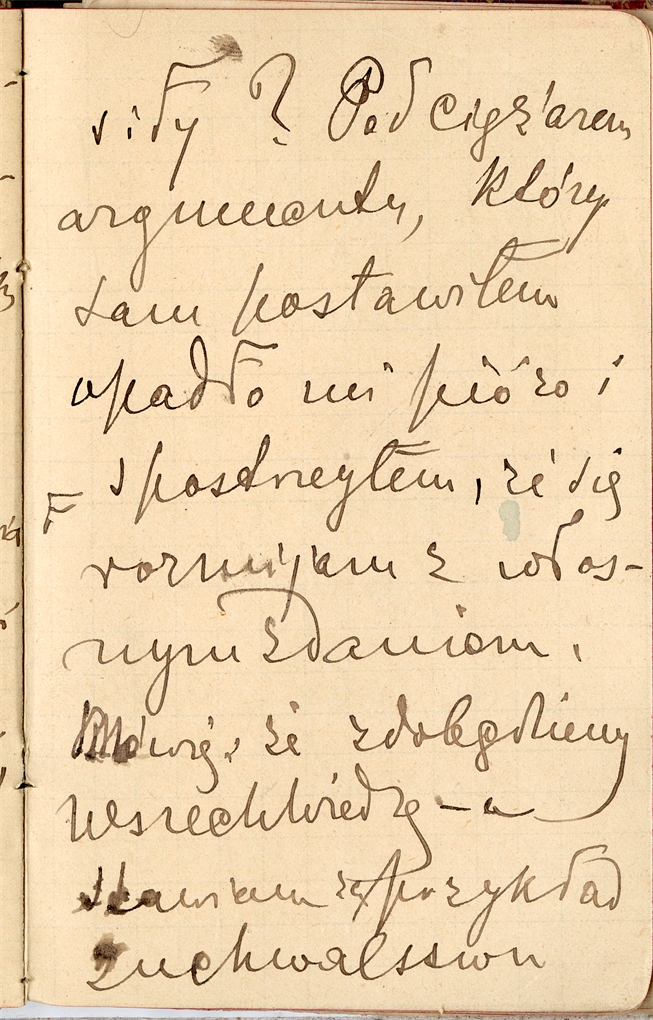 siły? Pod ciężarem
argumentu, który
sam postawiłem
opadło mi pióro i
spostrzegłem, że się
rozmijam z włas-
nym zdaniem.
Mówię, że zdobędziemy
Wszechwiedzę – a
stawiam za przykład